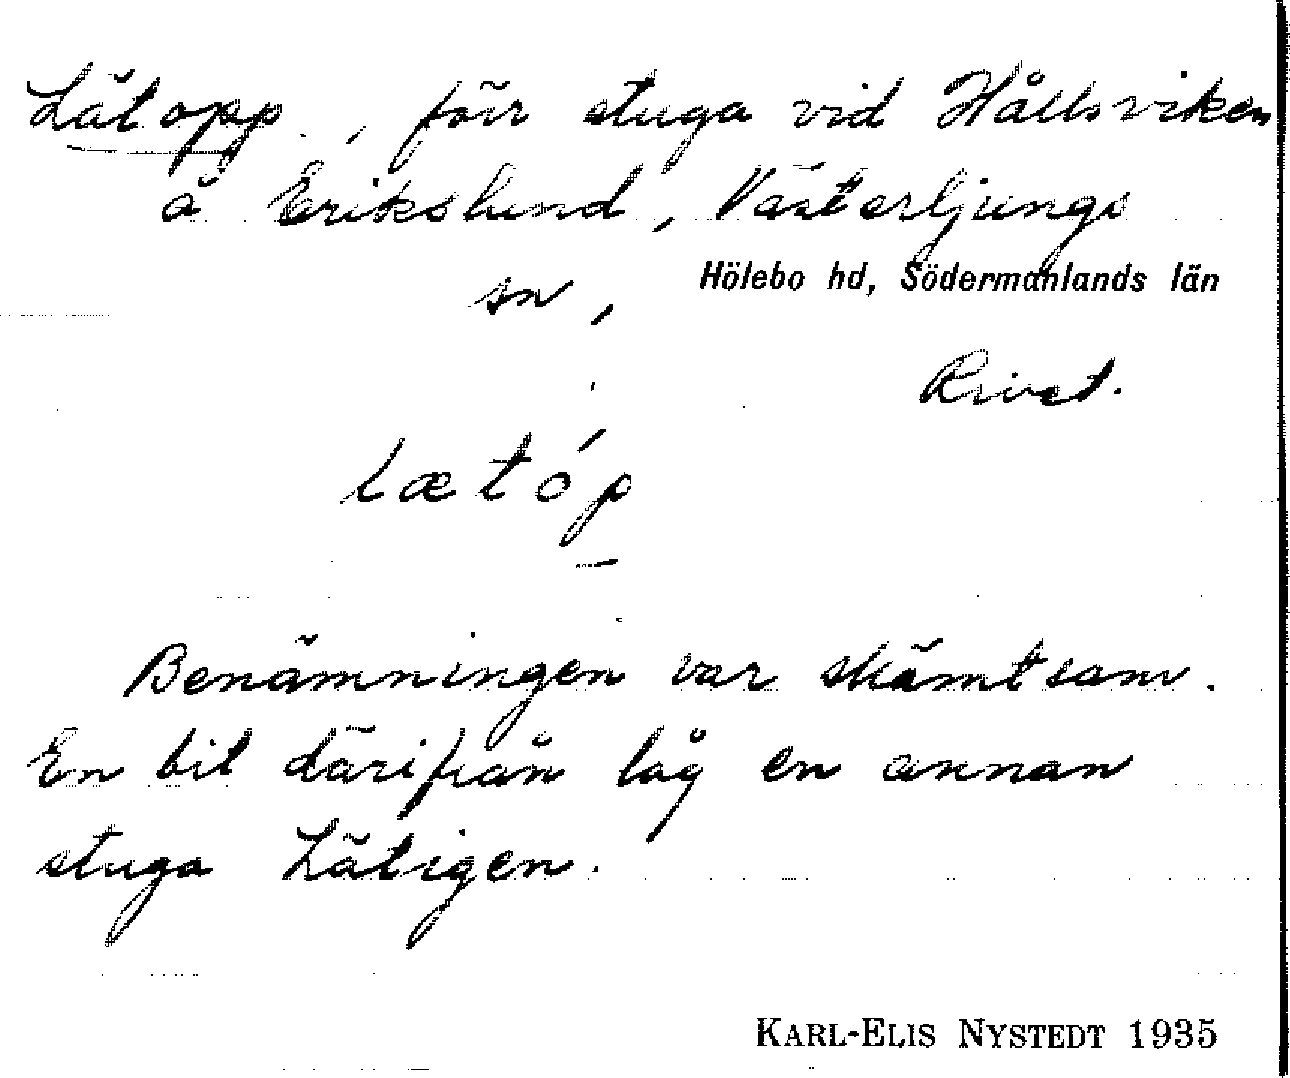 Lätopp, förr stuga vid Hållsviken
å Erikslund, Västerljungs
sn, Hölebo hd, Södermanlands län
Rivet.
lætóp
Benämningen var skämtsam.
En bit därifrån låg en annan
stuga Lätigen.
KARL-ELIS NYSTEDT 1935